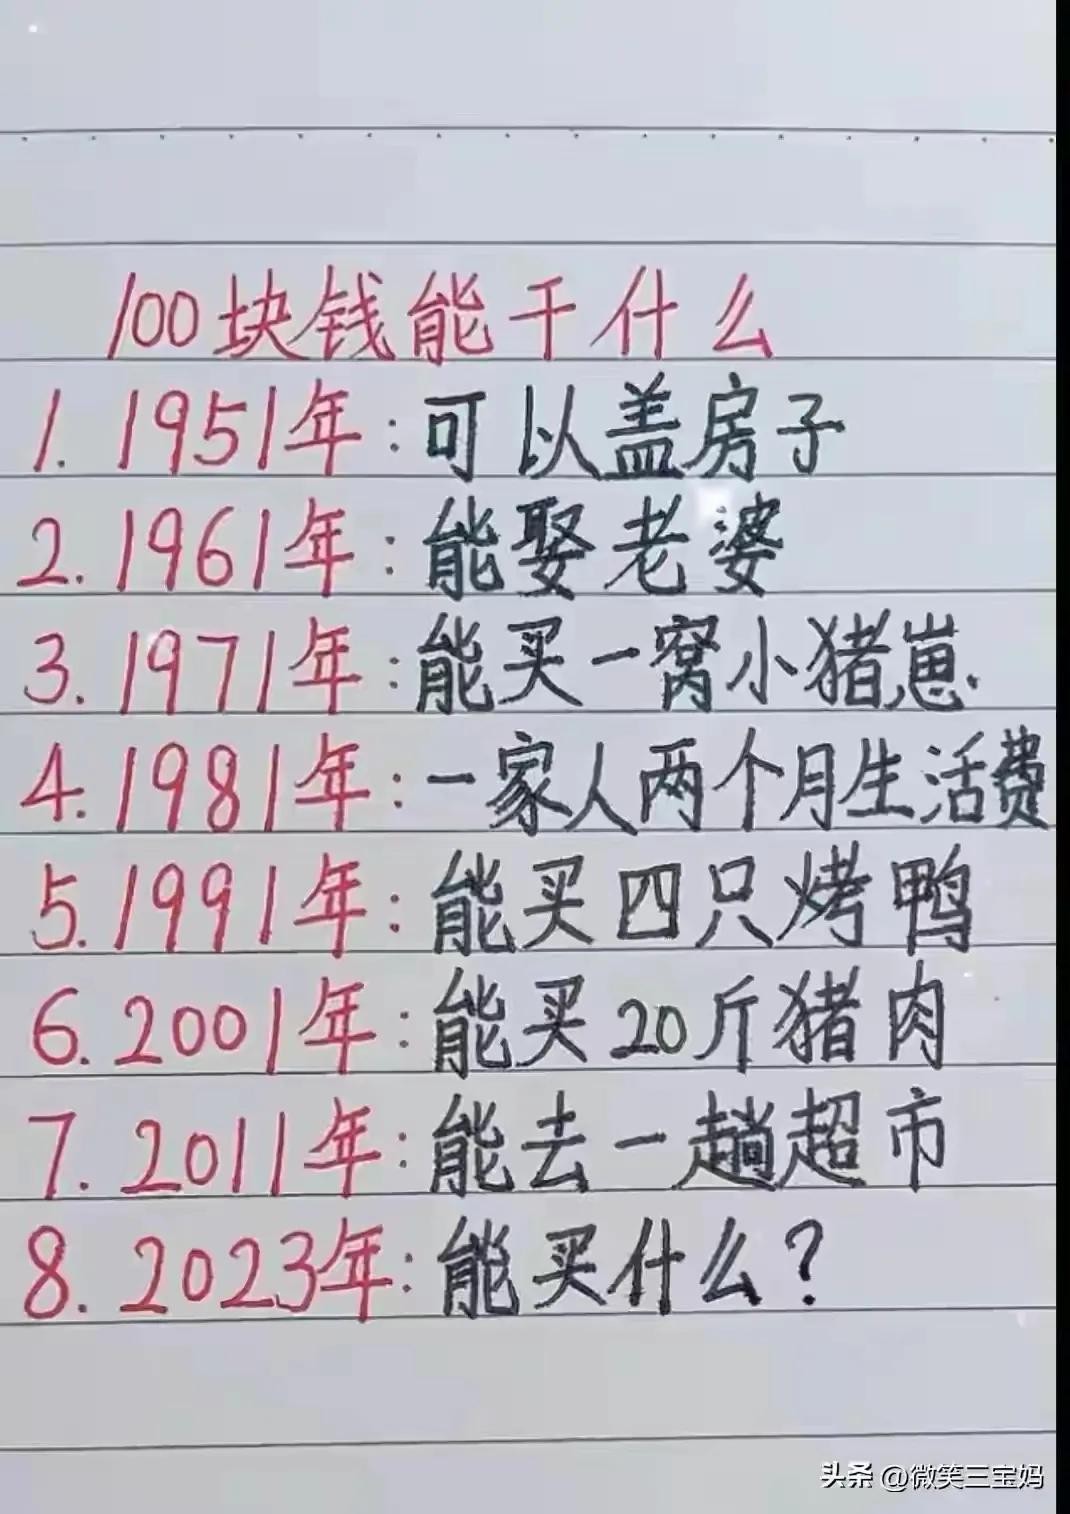 100块钱能干什么
1. 1951年:可以盖房子
2. 1961年:能娶老婆
3. 1971年:能买一窝小猪崽.
4. 1981年:一家人两个月生活费
5. 1991年:能买四只烤鸭
6. 2001年:能买20斤猪肉
7. 2011年:能去一趟超市
8. 2023年:能买什么?
头条 @微笑三宝妈